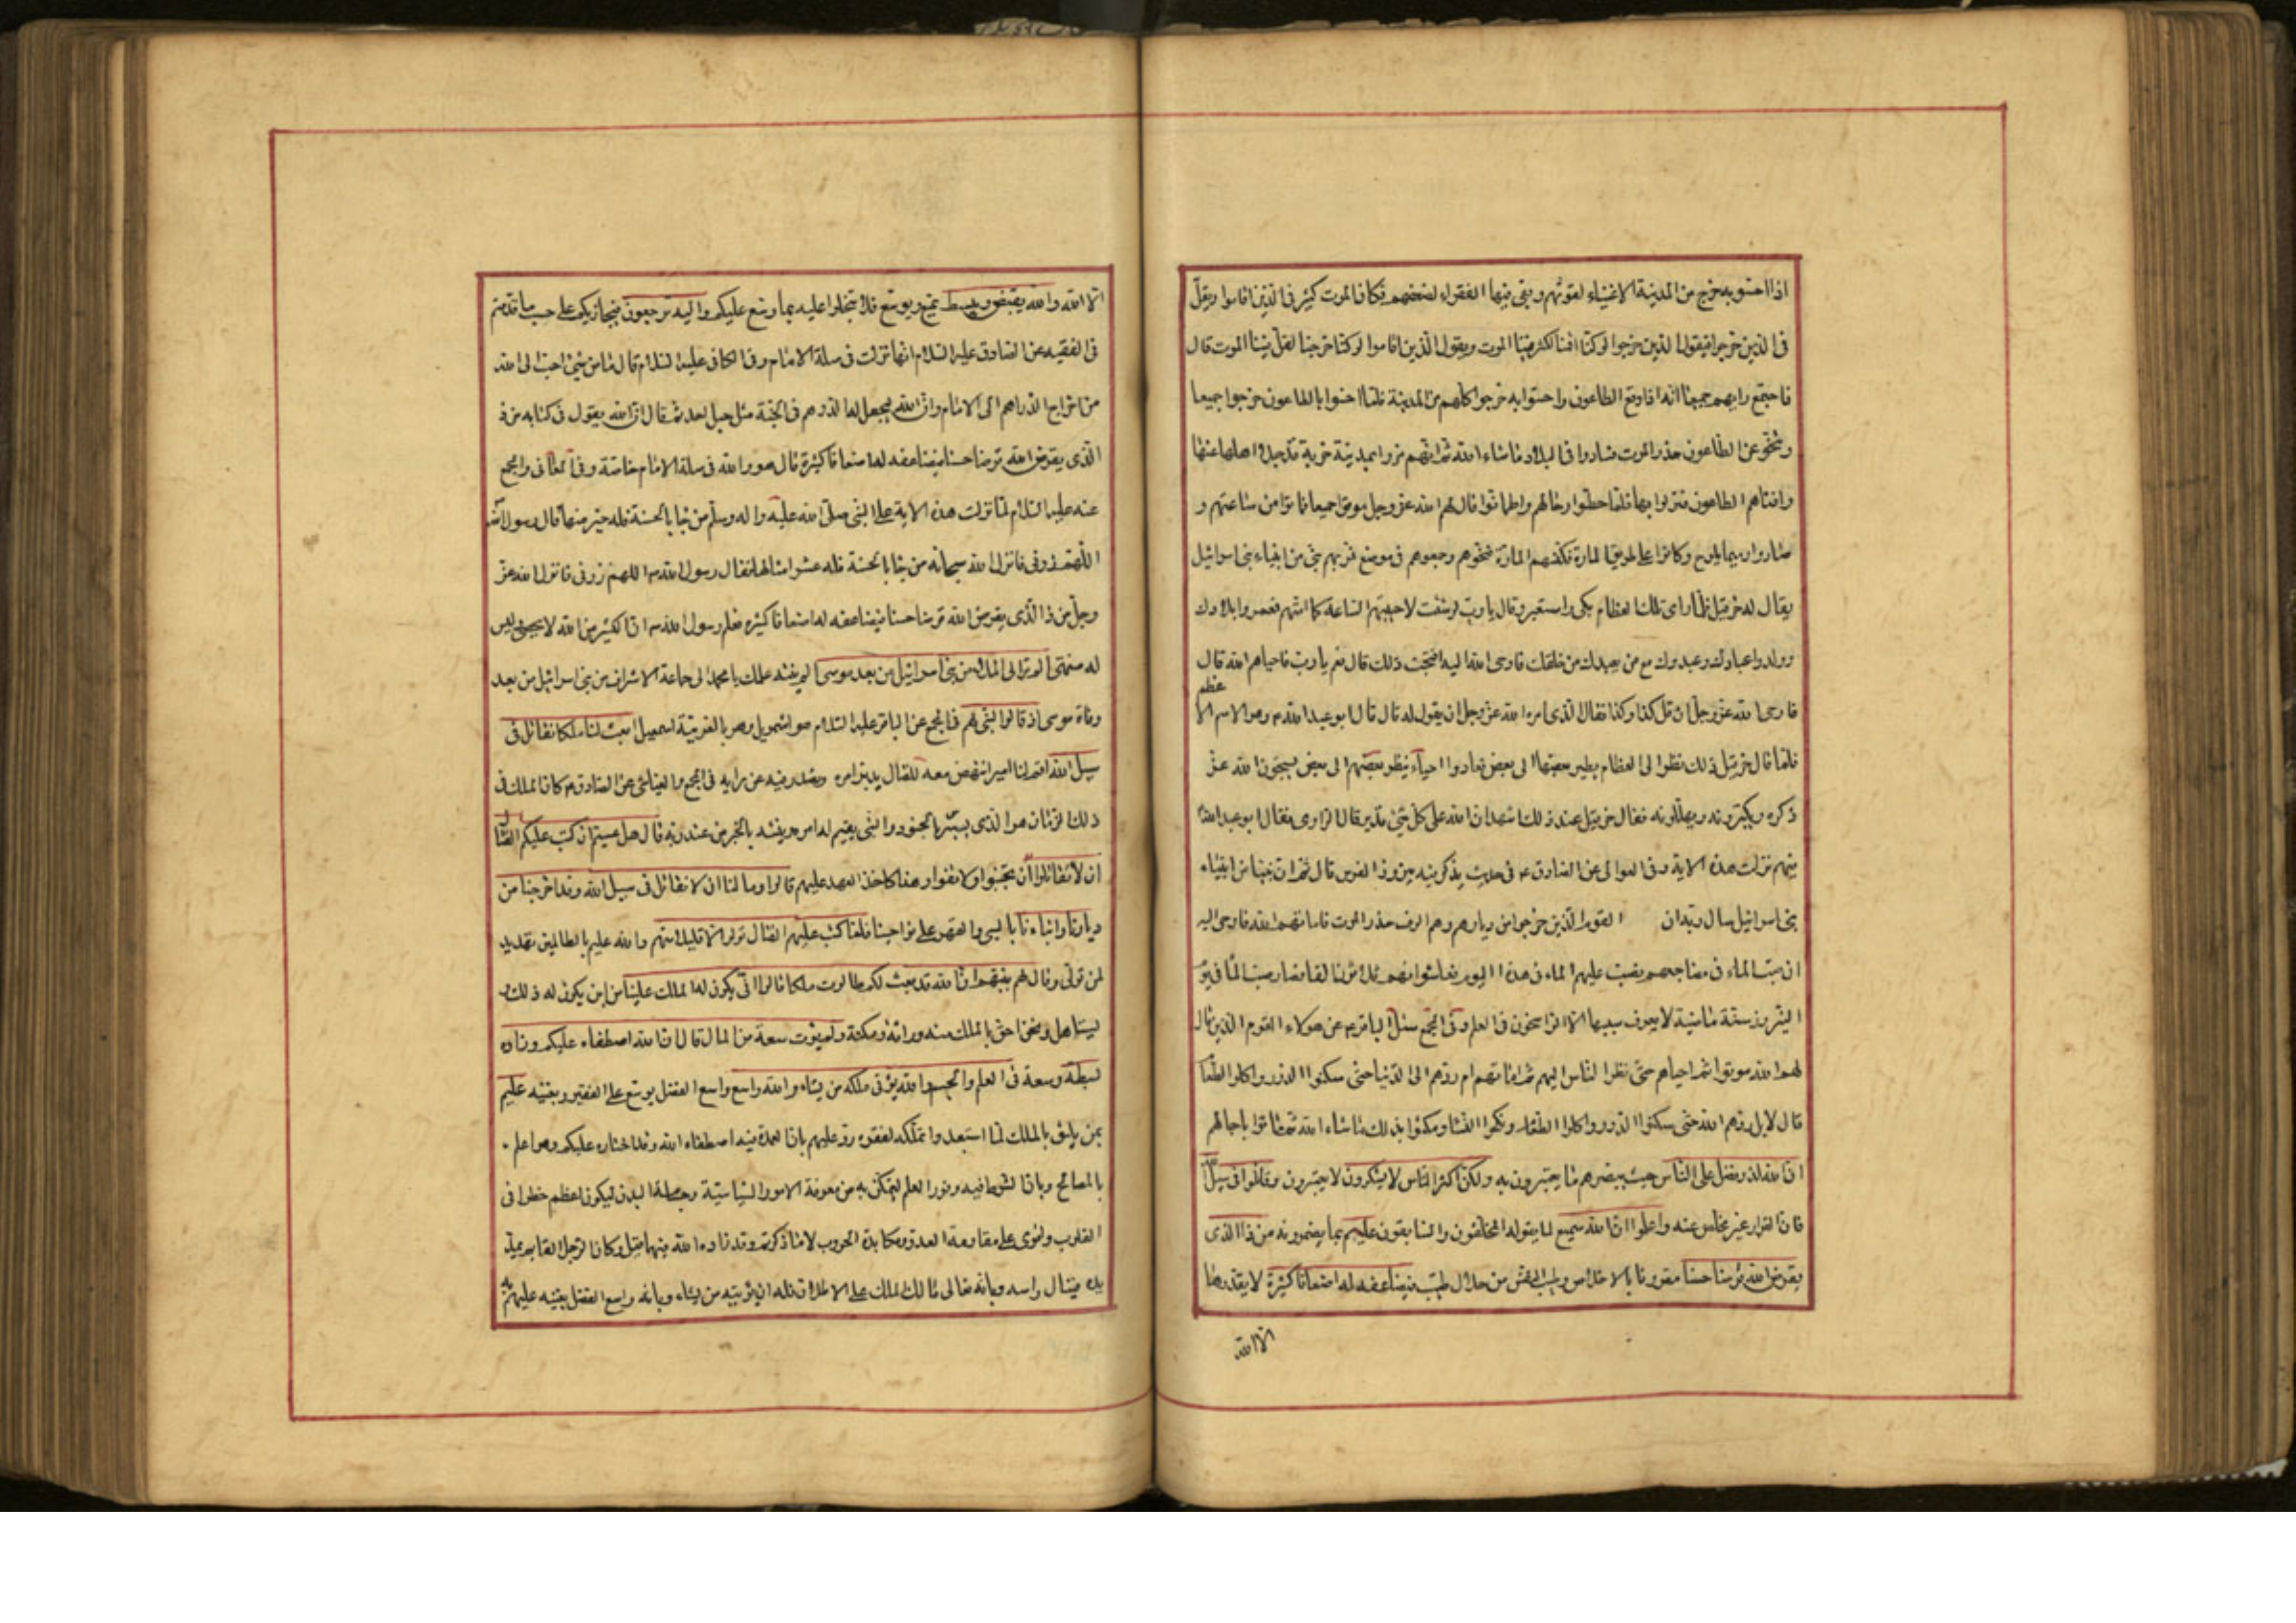 اذا احسّوا به خرج من المدينة الاغنياء لقوتهم وبقى فيها الفقراء لضعفهم فكان الموت كثير فى الذين اقاموا ويقلّ
فى الذين خرجوا فيقول الذين خرجوا لو كنّا اقمنا لكثر فينا الموت ويقول الذين اقاموا لو كنّا خرجنا لقلّ فينا الموت قال
فاجتمع رايهم جميعا انّه اذا وقع الطاعون واحسّوا به خرجوا كلّهم من المدينة فلمّا احسّوا بالطاعون خرجوا جميعا
وتنحّو عن الطاعون حذر الموت فساروا فى البلاد ما شاء الله ثم انّهم مرّوا بمدينة خربة قد جلا اهلها عنها
وافناهم الطاعون فنزلوا بها فلمّا حطّوا رحالهم واطمانّوا قال لهم الله عزّ وجل موتوا جميعا فماتوا من ساعتهم و
صاروا رميما يلوح وكانوا على طريق المارة فكنسهم المارة فنحّوهم وجمعوهم فى موضع فمر بهم نبى من انبياء بنى اسرائيل
يقال له حزقيل فلمّا راى تلك العظام بكى واستعبر وقال يا ربّ لو شئت لاحييتهم الساعة كما امتّهم فعمروا بلادك
وولدوا عبادك وعبدوك مع من يعبدك من خلقك فاوحى الله اليه افتحبّ ذلك قال نعم يا ربّ فاحياهم الله قال
فاوحى الله عزّ وجل ان قل كذا وكذا فقال الذى امره الله عزّ وجل ان يقوله قال قال ابو عبد الله ع وهو الاسم الاعظم
فلمّا قال حزقيل ذلك نظر الى العظام يطير بعضها الى بعض فعادوا احياء ينظر بعضهم الى بعض يسبّحون الله عزّ
ذكره ويكبّرونه ويهلّلونه فقال حزقيل عند ذلك اشهد ان الله على كلّ شئ قدير قال الراوى فقال ابو عبد الله ع
فيهم نزلت هذه الاية وفى العوالى عن الصادق ع فى حديث يذكر فيه نيروز الفرس قال ثم ان نبيّا من انبياء
بنى اسرائيل سال ربّه ان القوم الذين خرجوا من ديارهم وهم الوف حذر الموت فاماتهم الله فاوحى اليه
ان صبّ الماء فى مضاجعهم فصبّ عليهم الماء فى هذا اليوم فعاشوا وهم ثلاثون الفا فصار صبّ الماء فى يوم
النيروز سنّة ماضية لا يعرف سببها الّا الراسخون فى العلم وفى المجمع سئل الباقر ع عن هؤلاء القوم الذين قال
لهم الله موتوا ثم احياهم حتّى نظر الناس اليهم ثم اماتهم ام ردّهم الى الدّنيا حتى سكنوا الدور واكلوا الطعام
قال لا بل ردّهم الله حتّى سكنوا الدور واكلوا الطعام ونكحوا النساء ومكثوا بذلك ما شاء الله ثم ماتوا باجالهم
ان الله لذو فضل على النّاس حيث يبصرهم ما يعتبرون به ولكن اكثر النّاس لا يشكرون لا يعتبرون وقاتلوا فى سبيل الله
فان الفرار غير مخلّص عنه واعلموا ان الله سميع لما يقوله المخلّفون والسابقون عليم بما يضمرونه من ذا الذى
يقرض الله قرضا حسنا مقرونا بالاخلاص وطيب النفس من حلال طيّب فيضاعفه له اضعافا كثيرة لا يقدرها
الّا الله
الّا الله والله يقبض ويبسط يمنع ويوسّع فلا تبخلوا عليه بما وسّع عليكم واليه ترجعون فيجازيكم على حسب ما قدمتم
فى الفقيه عن الصادق عليه السّلام انها نزلت فى صلة الامام وفى الكافى عليه السّلام قال ما من شئ احبّ الى الله
من اخراج الدراهم الى الامام وان الله ليجعل له الدرهم فى الجنّة مثل جبل احد ثم قال ان الله يقول فى كتابه من ذ
الّذى يقرض الله قرضا حسنا فيضاعفه له اضعافا كثيرة قال هو والله فى صلة الامام خاصّة وفى المعانى والمجمع
عنه عليه السّلام لمّا نزلت هذه الاية على النبى صلّى الله عليه واله وسلّم من جاء بالحسنة فله خير منها قال رسول الله
اللّهم زدنى فانزل الله سبحانه من جاء بالحسنة فله عشر امثالها فقال رسول الله ص اللهم زدنى فانزل الله عزّ
وجلّ من ذا الّذى يقرض الله قرضا حسنا فيضاعفه له اضعافا كثيرة فعلم رسول الله ص ان الكثير من الله لا يحصى وليس
له منتهى الم تر الى الملاء من بنى اسرائيل من بعد موسى الم ينته علمك يا محمد الى جماعة الاشراف من بنى اسرائيل من بعد
وفاة موسى اذ قالوا لنبى لهم فى المجمع عن الباقر عليه السّلام هو اشمويل وهو بالعربيّة اسمعيل ابعث لنا ملكا نقاتل فى
سبيل الله اقم لنا اميرا ننهض معه للقتال يدبّر امره ونصدر فيه عن رايه فى المجمع والعيّاشى عن الصادق ع كان الملك فى
ذلك الزمان هو الذى يسير بالجنود والنبى يقيم له امره وينبئه بالخبر من عند ربّه قال هل عسيتم ان كتب عليكم القتال
ان لا تقاتلوا ان تجبنوا ولا تفوا وهناك اخذ العهد عليهم قالوا وما لنا ان لا نقاتل فى سبيل الله وقد اخرجنا من
ديارنا وابناءنا بالسبى والقهر على نواحينا فلمّا كتب عليهم القتال تولوا الّا قليلا منهم والله عليم بالظالمين تهديد
لمن تولّى وقال لهم نبيّهم ان الله قد بعث لكم طالوت ملكا قالوا انّى يكون له الملك علينا من اين يكون له ذلك و
يستاهل ونحن احقّ بالملك منه وراثة ومكنة ولم يؤت سعة من المال قال ان الله اصطفاه عليكم وزاده
بسطة وسعة فى العلم والجسم والله يؤتى ملكه من يشاء والله واسع واسع الفضل يوسّع على الفقير ويغنيه عليم
بمن يليق بالملك لمّا استبعدوا تملّكه لفقره ردّ عليهم بان العمدة فيه اصطفاء الله وقد اختاره عليكم وهو اعلم
بالمصالح وبان الشرط فيه وفور العلم ليتمكّن به من معرفة الامور السّياسيّة وجسامة البدن ليكون اعظم خطرا فى
القلوب واقوى على مقاومة العدوّ ومكابدة الحروب لا ما ذكرتم وقد زاده الله فيهما قيل وكان الرجل القائم يمدّ
يده فينال راسه وبانه تعالى مالك الملك على الاطلاق فله ان يؤتيه من يشاء وبانه واسع الفضل يغنيه عليم به